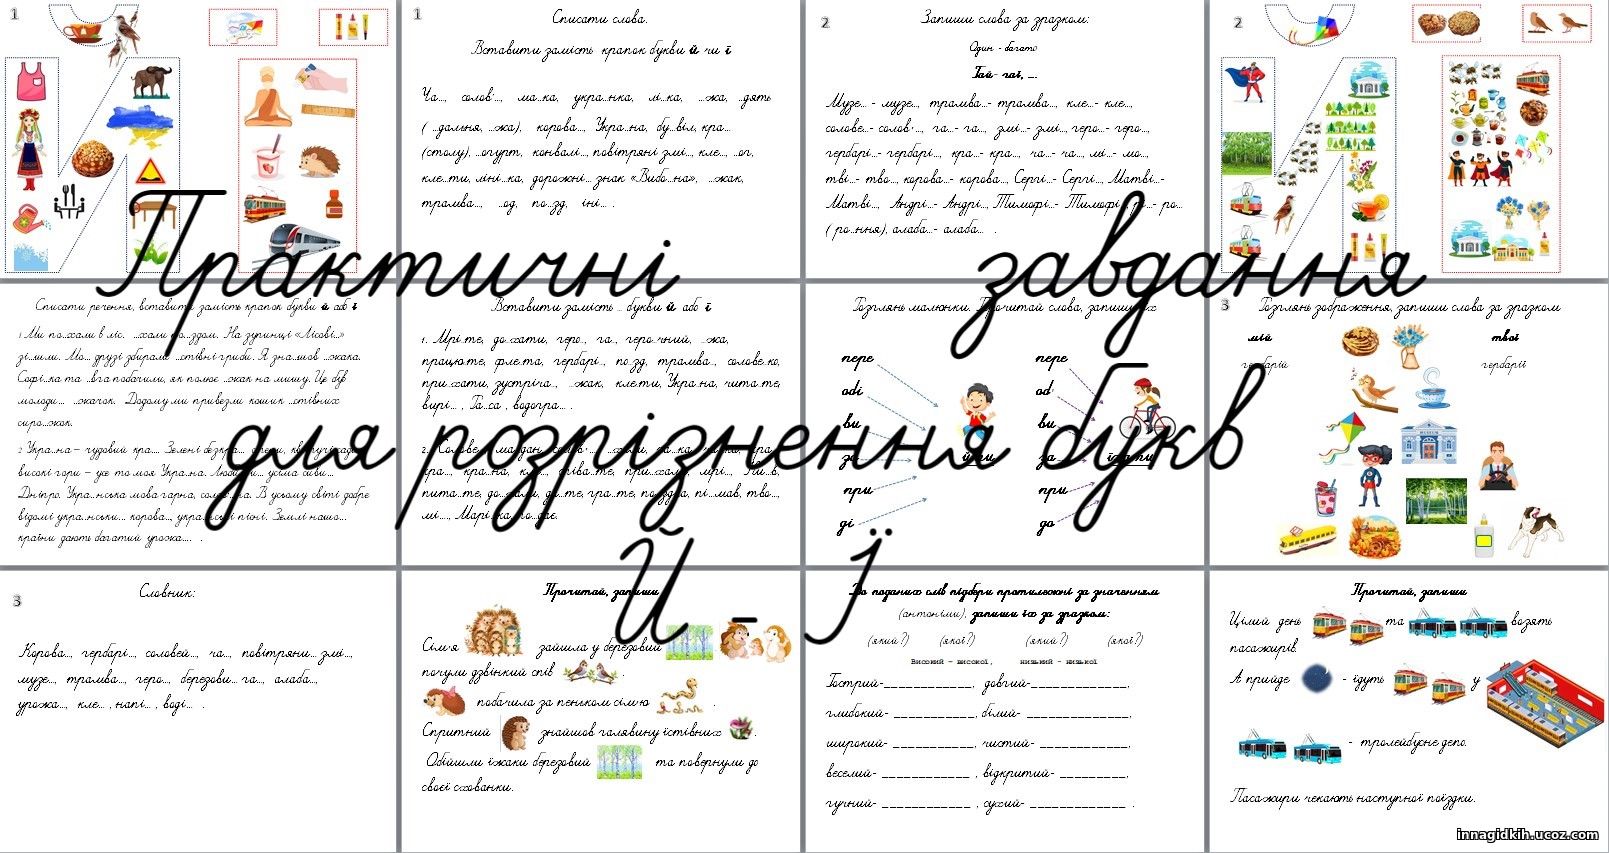 Практичні завдання
для розрізнення букв
Й - Ї
1
1
Списати слова.
Вставити замість крапок букви й чи ї.
Ча..., солов'..., ма...ка, укра...нка, лі...ка, ...жа, ...дять
( ...дальня, ...жа), корова..., Укра...на, бу...віл, кра...
(столу), ...огурт, конвалі..., повітряні змі..., кле..., ...ог,
кле...ти, ліні...ка, дорожні... знак «Вибо...на», ...жак,
трамва..., ...од, по...зд, іні... .
2
Запиши слова за зразком:
Один - багато
Гай- гаї, ...
Музе...- музе..., трамва...- трамва..., кле...- кле...,
солове...- солов'..., га...- га..., змі...- змі..., геро...- геро...,
гербарі...- гербарі..., кра...- кра..., ча...- ча..., мі...- мо...,
тві...- тво..., корова...- корова..., Сергі...- Сергі..., Матві...-
Матві..., Андрі...- Андрі..., Тимофі...- Тимофі.., ро...- ро...
( ро...ння), алаба...- алаба... .
2
Списати речення, вставити замість крапок букви й або ї
1 Ми по...хали в ліс. ...хали по...здом. На зупинці «Лісові...»
зі...шли. Мо... друзі збирали ...стівні гриби. Я зна...шов ...жака.
Софі...ка та ...вга побачили, як полює ...жак на мишу. Це був
молоди... ...жачок. Додому ми привезли кошик ...стівних
сиро...жок.
2 Укра...на – чудовий кра.... Зелені
високі гори – це то моя Укра...на.
Дніпро. Укра...нська мова гарна, В усьому світі добре
відомі укра...нськи... корова..., пісні. Землі нашо...
країни дають багатий урожа.... .
Вставити замість ... букви й або ї
1. Мрі...те, до...хати, геро..., га..., геро...чний, ...жа,
працю...те, фле...та, гербарі..., по...зд, трамва..., солове...ко,
при...хати, зустріча..., ...жак, кле...ти, Укра...на, чита...те,
вирі... , Га...са , водогра... .
2.
пита...те, гра...те, пі...мав, тво...,
мі..., Марі...ка,
Розглянь малюнки. Прочитай слова, запиши їх
пере
оді
ви
за
при
ді
йти
пере
од
ви
за
при
до
їхати
3
Розглянь зображення, запиши слова за зразком
мій
твої
гербарій
гербарії
3
Словник:
Корова..., гербарі..., соловей..., ча..., повітряни... змі...,
музе..., трамва..., геро..., березови... га..., алаба...,
урожа..., кле... , напі... , воді... .
Прочитай, запиши
Сім'я зайшла у березовий
почули дзвінкий спів .
побачила за пеньком сім'ю .
Спритний знайшов галявину їстівних .
Обійшли їжаки березовий та повернули до
своєї схованки.
До поданих слів підбери протилежні за значенням
(антоніми), запиши їх за зразком:
(який?) (якої?) (який?) (якої?)
Високий – високої , низький – низької
Гострий-____________, довгий-_____________,
глибокий- ___________, білий- ______________,
широкий- ___________, чистий- ____________,
веселий- ____________ , відкритий- _________,
гучний- ____________ , сухий- _____________ .
Прочитай, запиши
Цілий день та возять
пасажирів.
А прийде - їдуть у
- тролейбусне депо.
Пасажири чекають наступної поїздки.
innagidkih.ucoz.com